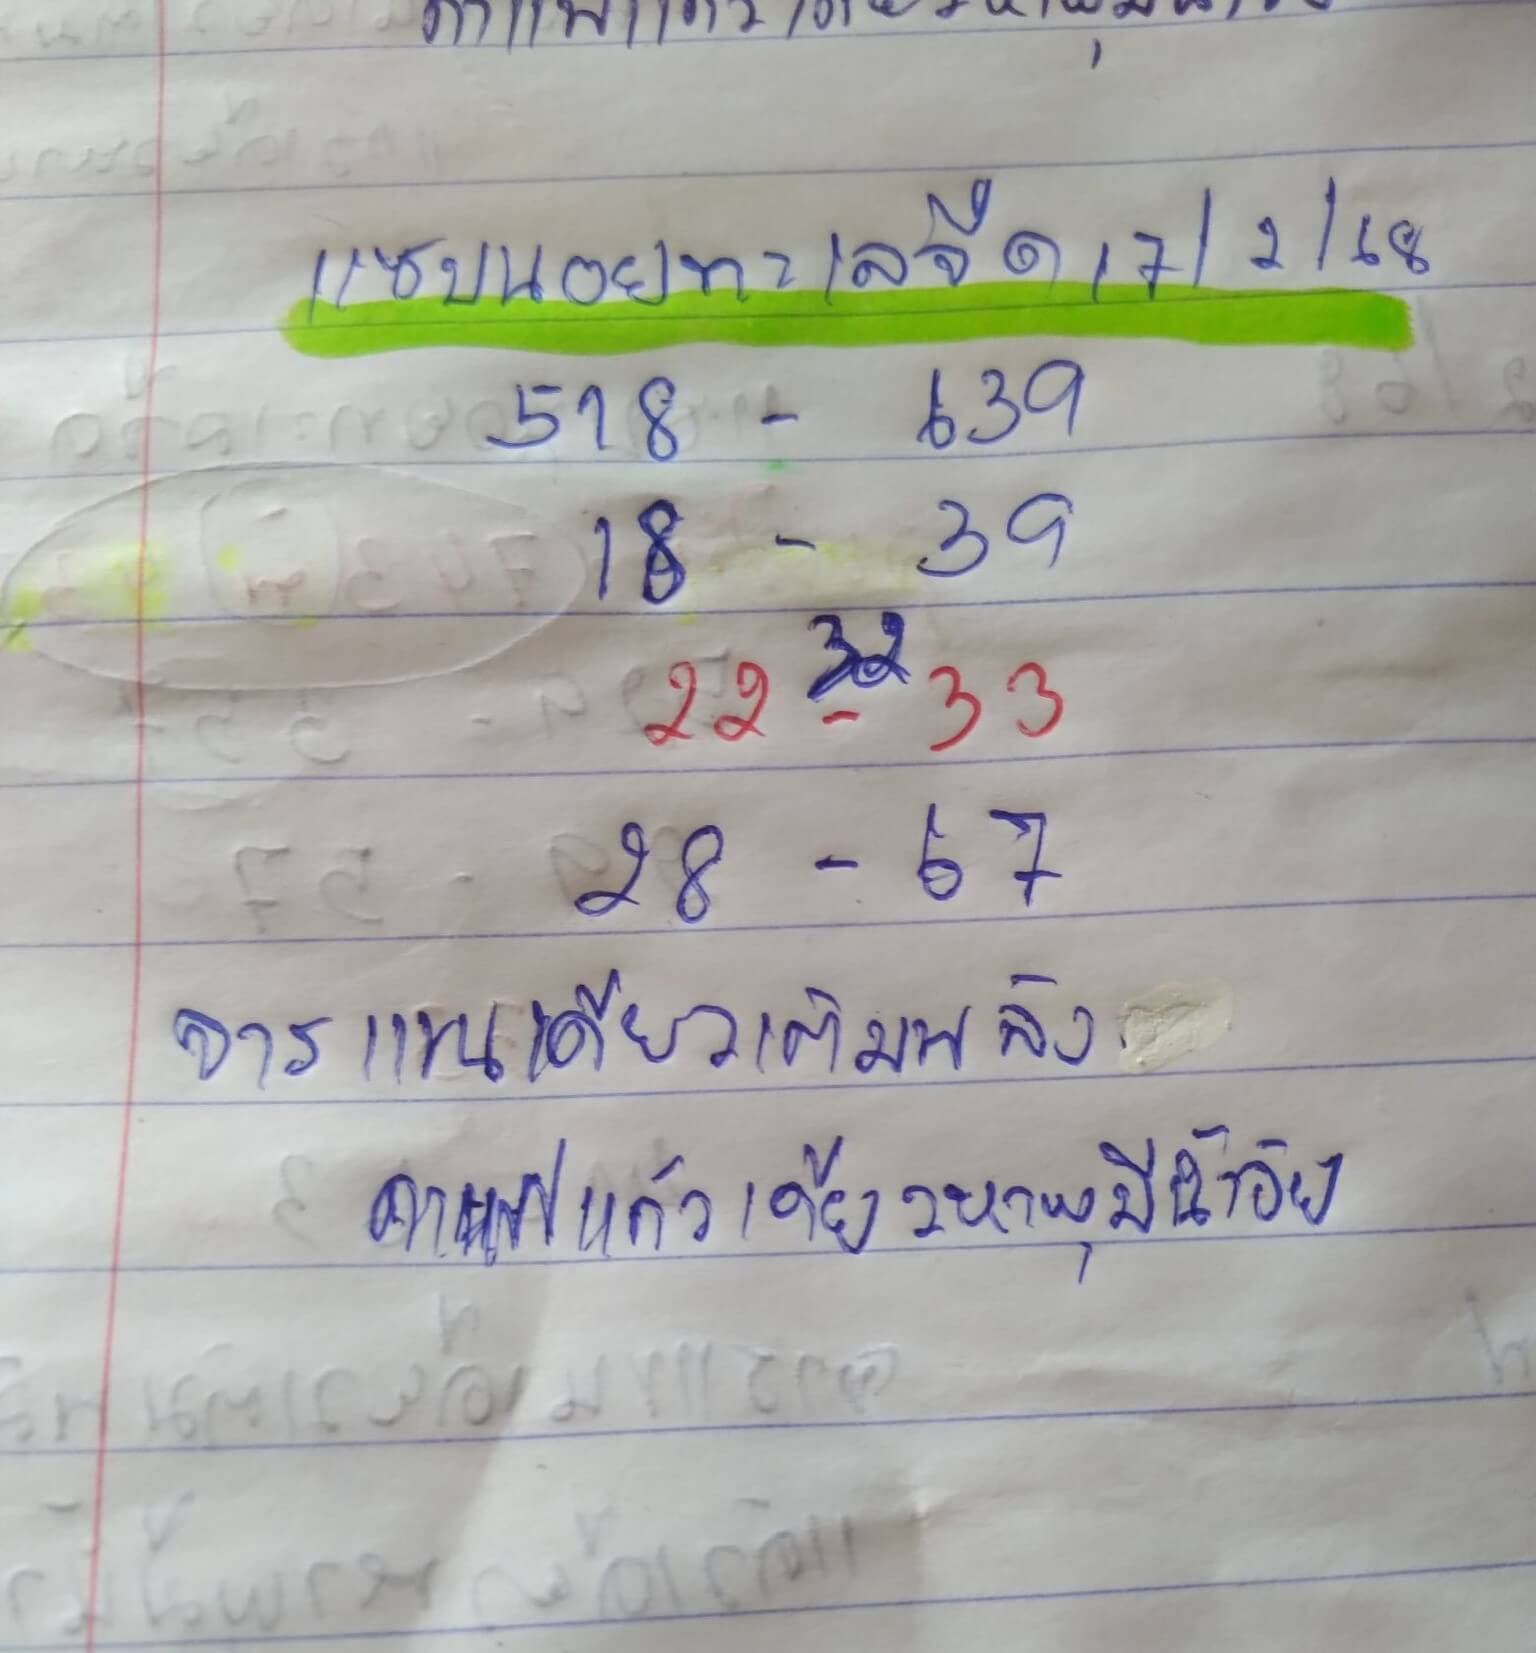 แซบนอยทะเลจืด 17/2/68
518 - 639
18 - 39
32
22 - 33
28 - 67
จารแขนเดียวเติมพลัง
กาแฟแก้วเดียวหาพุมีน้อย